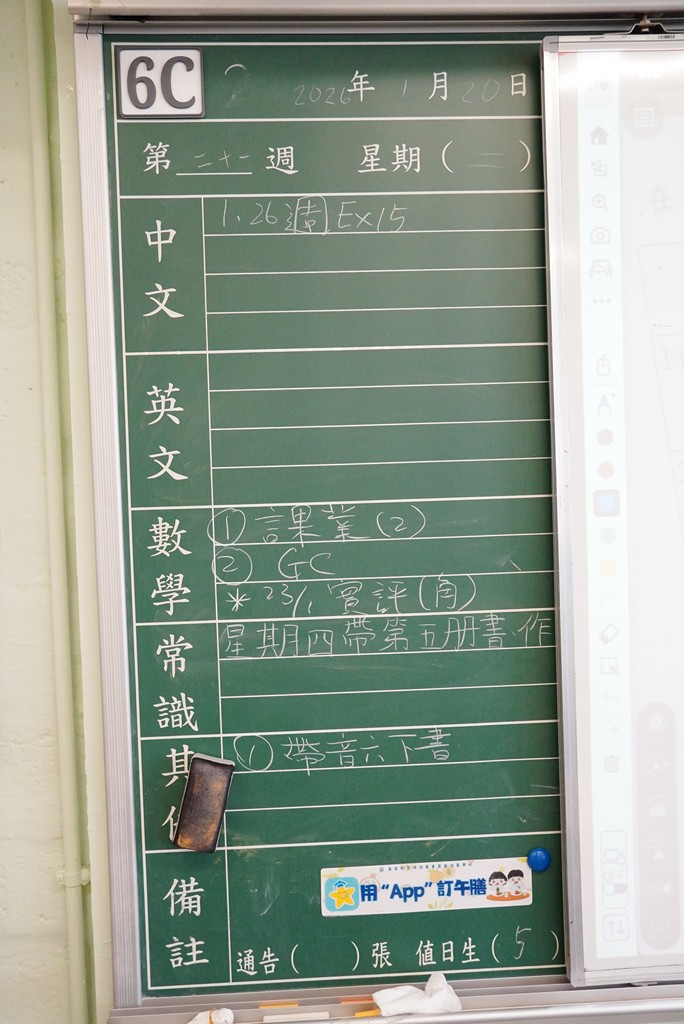 6C
2026年 1月20日
第二十一週 星期(二)
中文
1. 26週 Ex15
英文
數學
① 課業(2)
② GC
* 23/1 實評(角)
常識
星期四帶第五冊書、作
其他
① 帶音六下書
備註
用“App”訂午膳
通告( )張 值日生(5)
OFF